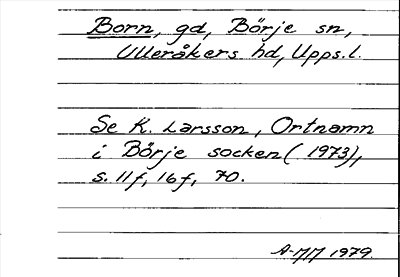 Born, gd, Börje sn,
Ulleråkers hd, Upps.l.
Se K. Larsson, Ortnamn
i Börje socken ( 1973),
s. 11f, 16f, 70.
A-MM 1979.